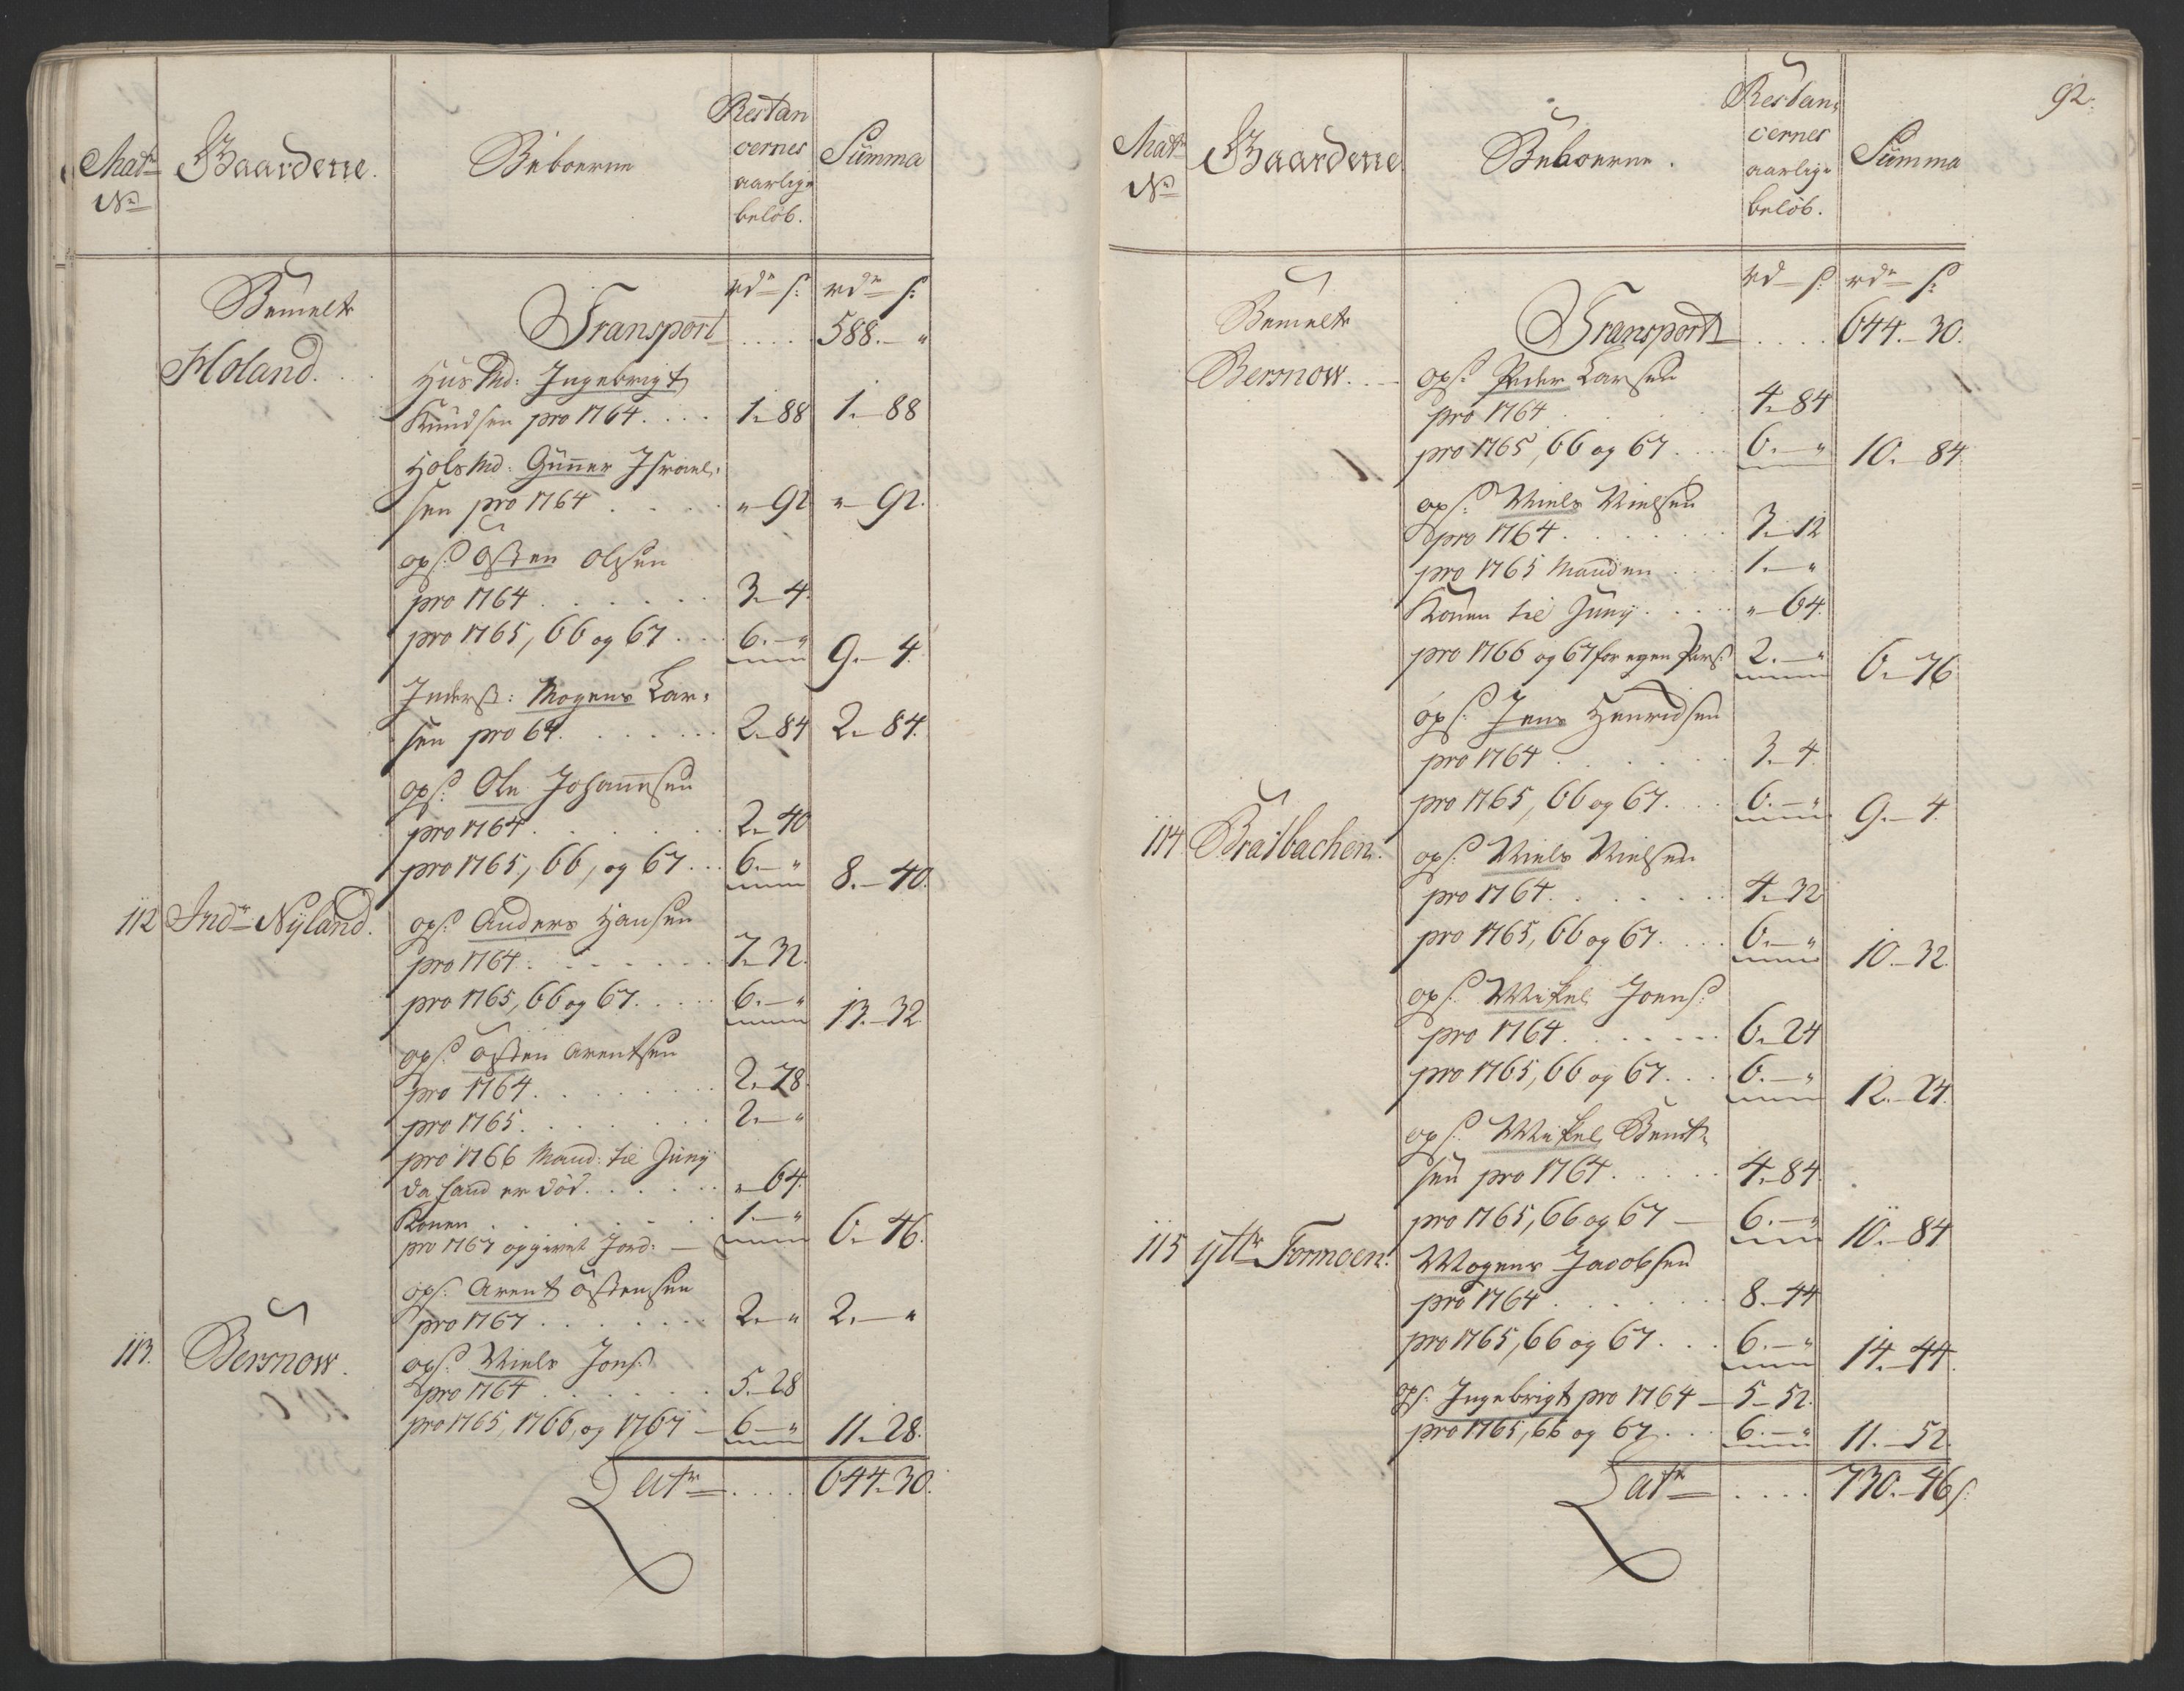 Matr
No
Gaardene.
Beboerne
Restan
cernes
aarlige
beløb.
Summa
rdr s: rdr s:
Bemelte
Transport .... 588.- "
Holand. ..
Huusmd: Ingebrigt
Knudsen pro 1764. ... 1.-88 1.-88
Gunner Israel-
sen pro 1764 .... "-92 "-92.
ops: Østen Olsen
pro 1764 ...... 3.-4.
pro 1765, 66 og 67 ... 6.-" 9.-4.
Inderst: Mogens Lar-
sen pro 64. ..... 2.-84 2.-84.
ops: Ole Johannesen
pro 1764. ..... 2.-40
pro 1765, 66, og 67 ... 6.-" 8.-40.
112 Indr Nÿland.
ops: Anders Hansen
pro 1764. ..... 7.-32.
pro 1765, 66 og 67. .... 6.-" 13.-32.
ops: Østen Arentsen
pro 1764. ..... 2.-78.
pro 1765. ..... 2.-"
pro 1766 Mand: til Junÿ
da hand er død. .... "-64.
Konen ...... 1.-" 6.-46.
pro 1767 opgivet Jord: —
ops: Arent Østensen
pro 1767 ..... 2.-" 2.-"
113. Bersnow.
ops: Niels Jons:
pro 1764 ..... 5.-28
pro 1765, 1766, og 1767 — 6.-" 11.-28.
Latr .... 644.-30.
92.
Matr
No
Gaardene
Beboerne.
Restan-
cernes
aarlige
beløb.
Summa
rd s: rdr s:
Bemelte
Transport .... 644.-30.
Bersnow. ..
ops: Peder Larsen
pro 1764 ..... 4.-84
pro 1765, 66 og 67 ... 6.-" 10.-84
ops: Niels Nielsen
pro 1764. ..... 3.-12
pro 1765 Manden ... 1.-"
Konen til Junÿ .... "-64
pro 1766 og 67 for egen Pers: 2.-" 6.-76
ops: Jens Henridsen
pro 1764 ..... 3.-4.
pro 1765, 66 og 67. ... 6.-" 9.-4.
114. Bratbachen.
ops: Niels Nielsen
pro 1764. ..... 4.-32
pro 1765, 66 og 67. ... 6.-" 10.-32.
ops: Mikel Joens:
pro 1764. ..... 6.-24
pro 1765, 66 og 67. .. 6.-" 12.-24.
ops: Mikel Bent-
sen pro 1764. .... 4.-84.
pro 1765, 66 og 67 — 6.-" 10.-84
115 ÿttr Formoen.
Mogens Jacobsen
pro 1764 ..... 8.-44
pro 1765, 66 og 67. .. 6.-" 14.-44.
ops: Ingebrigt pro 1764 — 5.-52.
pro 1765, 66 og 67 ... 6.-" 11.-52.
Latr .... 730.-46 s: